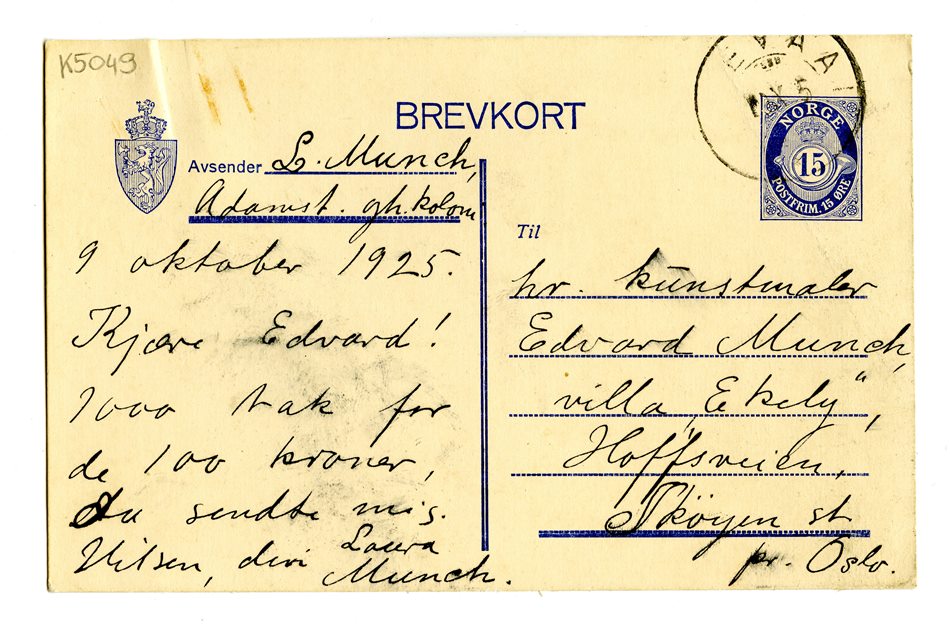 K5049
BREVKORT
NORGE
15
POSTFRIM. 15 ØRE
Avsender L. Munch,
Adamst. gh.koloni
9 oktober 1925.
Kjære Edvard!
1000 tak for
de 100 kroner,
du sendte mig.
Hilsen, din Laura
Munch.
Til
hr. kunstmaler
Edvard Munch,
villa „Ekely“,
Hoffsveien,
Skøyen st
pr. Oslo.